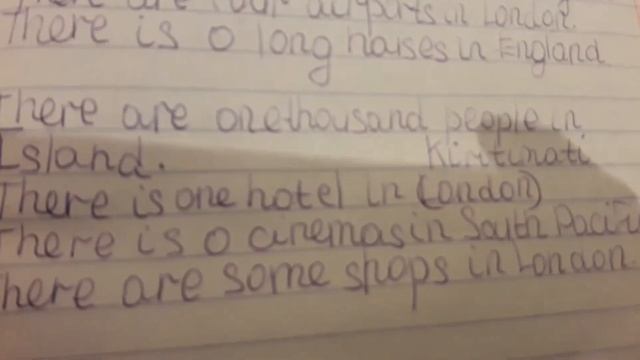 there are four airports in London.
There is 0 long houses in England
There are onethousand people in
Island. Kiritimati
There is one hotel in (London)
There is 0 cinemas in South Pacific
There are some shops in London